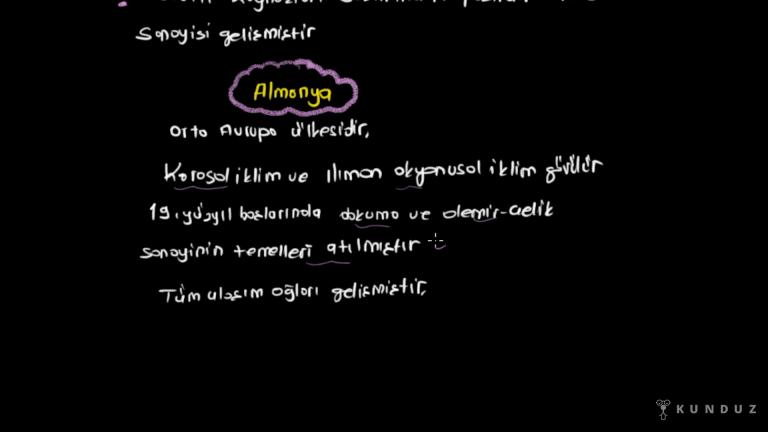 Sanayisi gelişmiştir
Almanya
Orta Avrupa ülkesidir,
Karasal iklim ve ılıman okyanusal iklim görülür
19. yüzyıl başlarında dokuma ve demir-çelik
sanayinin temelleri atılmıştır
Tüm ulaşım ağları gelişmiştir,
KUNDUZ